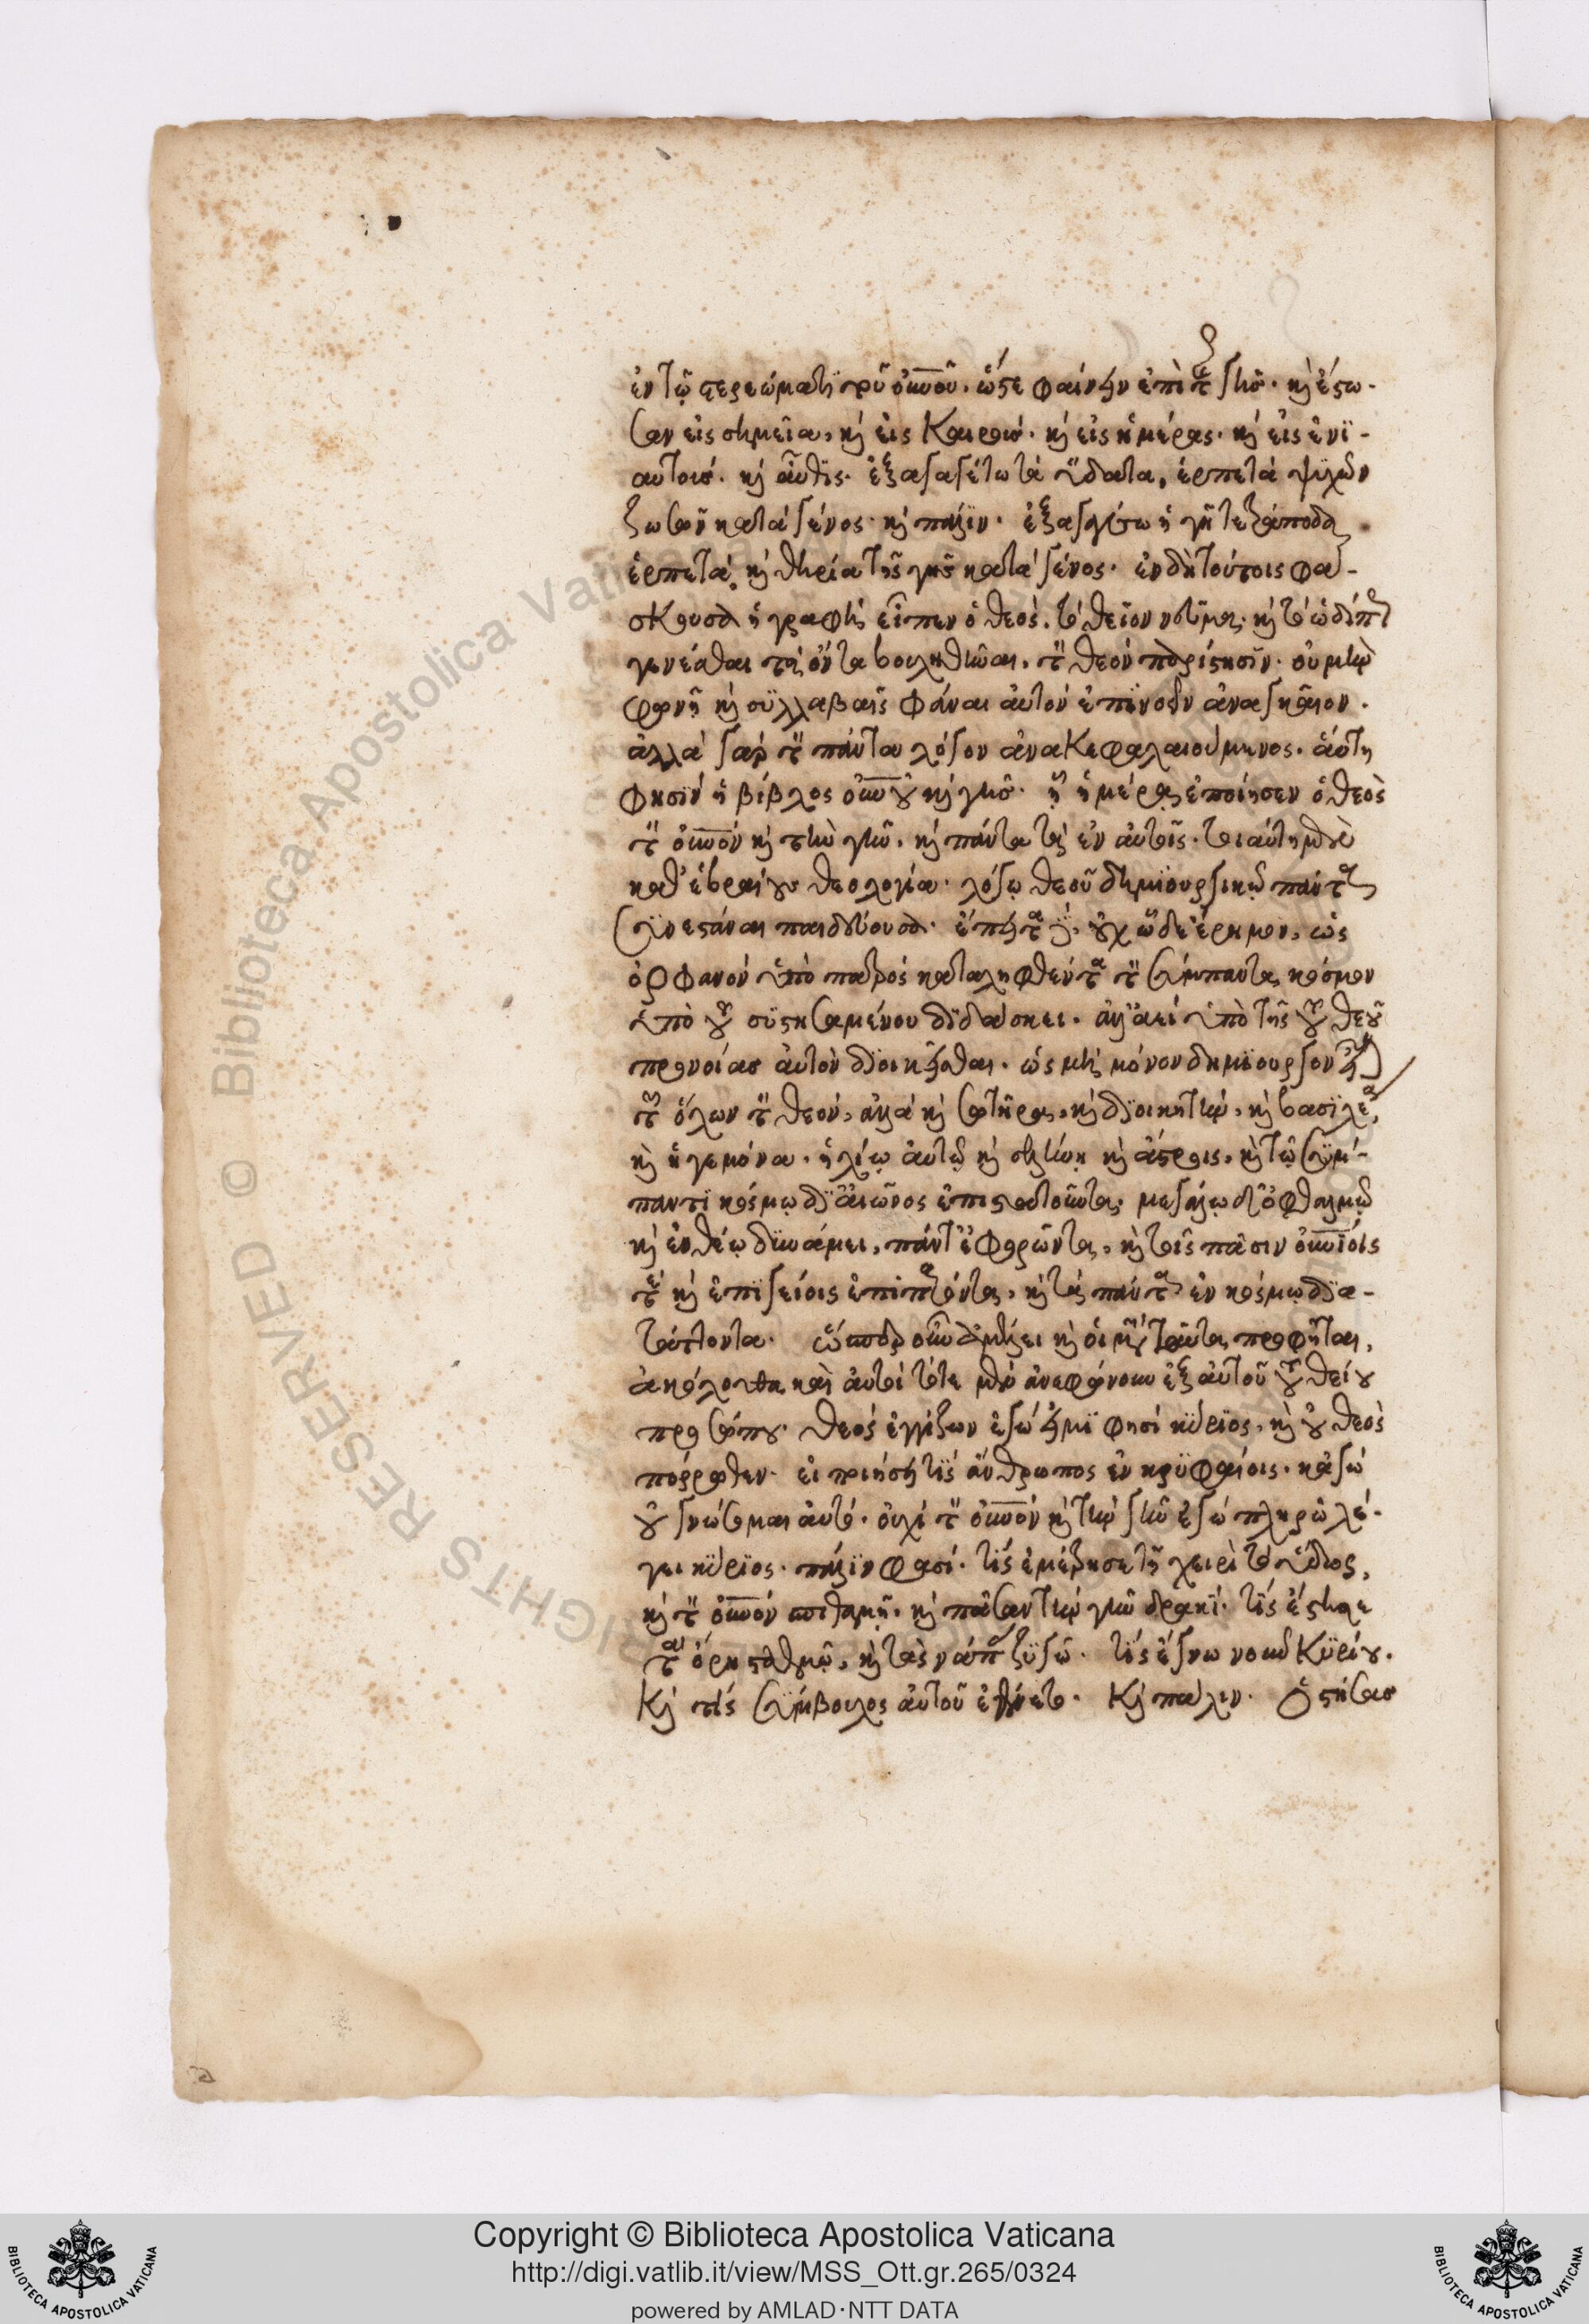 ἐν τῷ στερεώματι τοῦ οὐνοῦ. ὥστε φαίνειν ἐπὶ τῆς γῆς. καὶ ἔστω-
σαν εἰς σημεῖα, καὶ εἰς καιροὺς. καὶ εἰς ἡμέρας. καὶ εἰς ἐνϊ-
αυτοὺς. καὶ αὖθις. ἐξαγαγέτω τὰ ὕδατα, ἑρπετὰ ψυχῶν
ζωσῶν κατὰ γένος. καὶ πάλιν. ἐξαγαγέτω ἡ γῆ τετράποδα
ἑρπετὰ, καὶ θηρία τῆς γῆς κατὰ γένος. ἐν δὴ τούτοις φα-
σκουσα ἡ γραφὴ εἶπεν ὁ θεὸς, τὸ θεῖον νεῦμα. καὶ τὸ ὡδίπως
γενέσθαι τὰ ὄντα βουληθῆναι, τὸν θεὸν παρίστησιν. οὐ μὴν
φωνῇ καὶ συλλαβαῖς φάναι αὐτὸν ἐπινοεῖν ἀναγκαῖον.
ἀλλὰ γὰρ τὸν πάντα λόγον ἀνακεφαλαιούμενος. αὕτη
φησὶν ἡ βίβλος οὐνοῦ καὶ γῆς. ᾗ ἡμέρα ἐποίησεν ὁ θεὸς
τὸν οὐνὸν καὶ τὴν γῆν, καὶ πάντα τὰ ἐν αὐτοῖς. τοιαύτη μὲν ἡ
καθ' ἑβραίους θεολογία. λόγῳ θεοῦ δημιουργικῷ πάντα
συνεστάναι παιδεύουσα. ἔπειτα δὲ, οὐχ ὧδε ἔρημον, ὡς
ὀρφανὸν ὑπὸ πατρὸς καταληφθέντα τὸν σύμπαντα κόσμον
ὑπὸ τοῦ συστησαμένου διδάσκει. ἀλλ' ἀεὶ ὑπὸ τῆς τοῦ θεοῦ
προνοίας αὐτὸν διοικεῖσθαι. ὡς μὴ μόνον δημιουργὸν εἶναι
τῶν ὅλων τὸν θεὸν, ἀλλὰ καὶ σωτῆρα, καὶ διοικητὴν, καὶ βασιλέα,
καὶ ἡγεμόνα. ἡλίῳ αὐτῷ καὶ σελήνῃ καὶ ἄστροις, καὶ τῷ σύμ-
παντι κόσμῳ δι' αἰῶνος ἐπιστατοῦντα. μεγάλῳ τ' ὀφθαλμῷ
καὶ ἐνθέῳ δυνάμει, πάντ' ἐφορῶντα, καὶ τοῖς πᾶσιν οὐνίοις
τὲ καὶ ἐπιγείοις ἐπιπαρόντα, καὶ τὰ πάντα ἐν κόσμῳ δια-
τάττοντα. ὥσπερ οὖν ἀμέλει καὶ οἱ μετὰ ταῦτα προφῆται,
ἀκόλουθα καὶ αὐτοὶ τότε μὲν ἀνεφώνουν ἐξ αὐτοῦ τοῦ θείου
προσώπου. θεὸς ἐγγίζων ἐγώ εἰμι φησὶ κύριος, καὶ οὐ θεὸς
πόρρωθεν. εἰ ποιήσει τὶς ἄνθρωπος ἐν κρυφαίοις. κἀγὼ
οὐ γνώσομαι αὐτό. οὐχὶ τὸν οὐνὸν καὶ τὴν γῆν ἐγὼ πληρῶ λέ-
γει κύριος. πάλιν φασί. τὶς ἐμέτρησε τῇ χειρὶ τὸ ὕδωρ,
καὶ τὸν οὐνὸν σπιθαμῇ. καὶ πᾶσαν τὴν γῆν δρακί. τὶς ἔστησε
τὰ ὄρη σταθμῷ, καὶ τὰς νάπας ζυγῷ. τὶς ἔγνω νοῦν κυρίου.
καὶ τὶς σύμβουλος αὐτοῦ ἐγένετο. καὶ πάλιν. ὁ στήσας
Copyright © Biblioteca Apostolica Vaticana
http://digi.vatlib.it/view/MSS_Ott.gr.265/0324
powered by AMLAD·NTT DATA